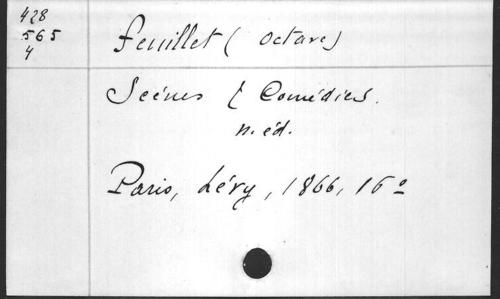 428
565
4
Feuillet (Octave)
Scènes & Comédies.
n. éd.
Paris, Lévy, 1866, 16º